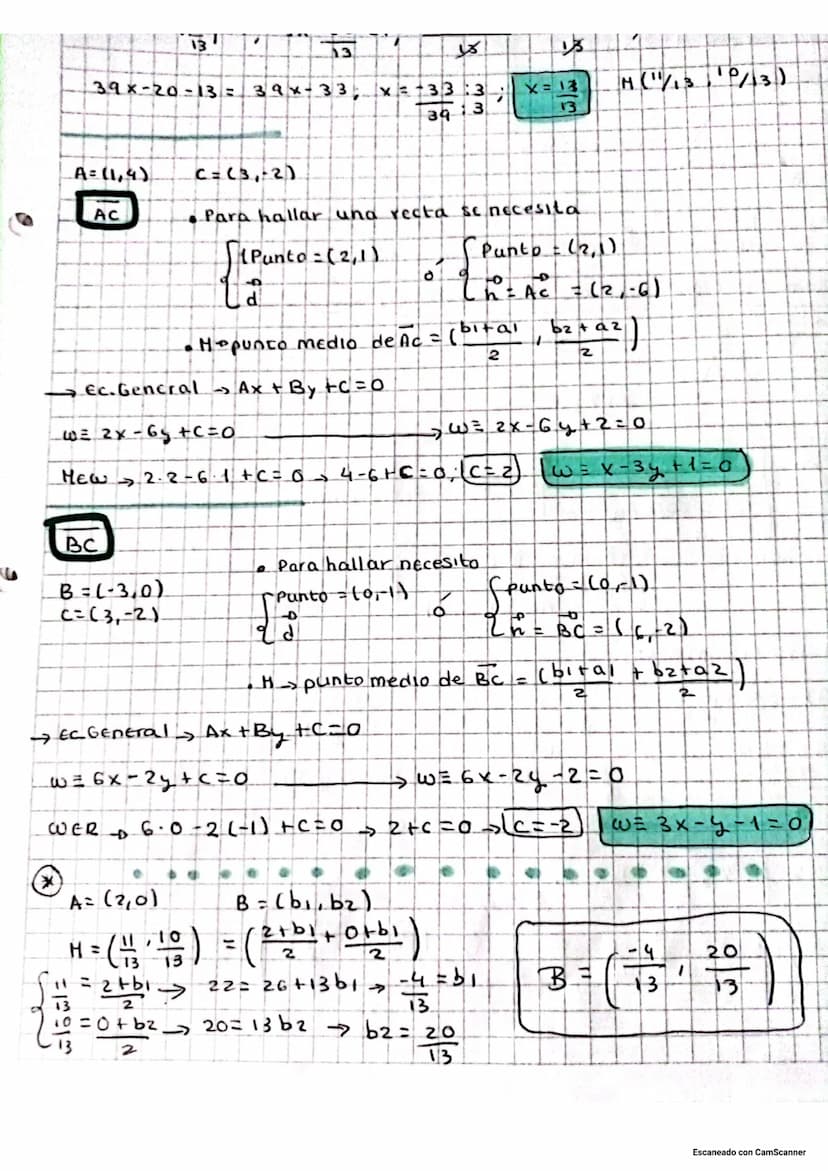 13 13 13 13
39x-20-13 = 39x-33; x = -33 :3 / 39 :3 ; x = 13/13 M (11/13, 10/13)
A=(1,4) C=(3,-2)
AC • Para hallar una recta se necesita
{ 1Punto = (2,1) ó { Punto = (2,1)
d n = AC = (2,-6)
• M→punto medio de AC = (b1+a1/2, b2+a2/2)
→ Ec.General → Ax+By+C=0
w≡ 2x-6y+C=0 → w≡ 2x-6y+2=0
MEW → 2·2-6·1+C=0 → 4-6+C=0, C=2 w≡ x-3y+1=0
BC
• Para hallar necesito
B=(-3,0) { Punto = (0,-1) ó { punto = (0,-1)
C=(3,-2) d n = BC = (6,-2)
• M → punto medio de BC = (b1+a1/2 + b2+a2/2)
→ Ec.General → Ax+By+C=0
w≡ 6x-2y+c=0 → w≡ 6x-2y-2=0
WER → 6·0-2(-1)+C=0 → 2+C=0 → C=-2 w≡ 3x-y-1=0
* A= (2,0) B = (b1,b2)
M = (11/13, 10/13) = (2+b1/2 + 0+b1/2)
{ 11/13 = 2+b1/2 → 22= 26+13b1 → -4/13 = b1
10/13 = 0+b2/2 → 20= 13b2 → b2= 20/13
B = (-4/13, 20/13)
Escaneado con CamScanner